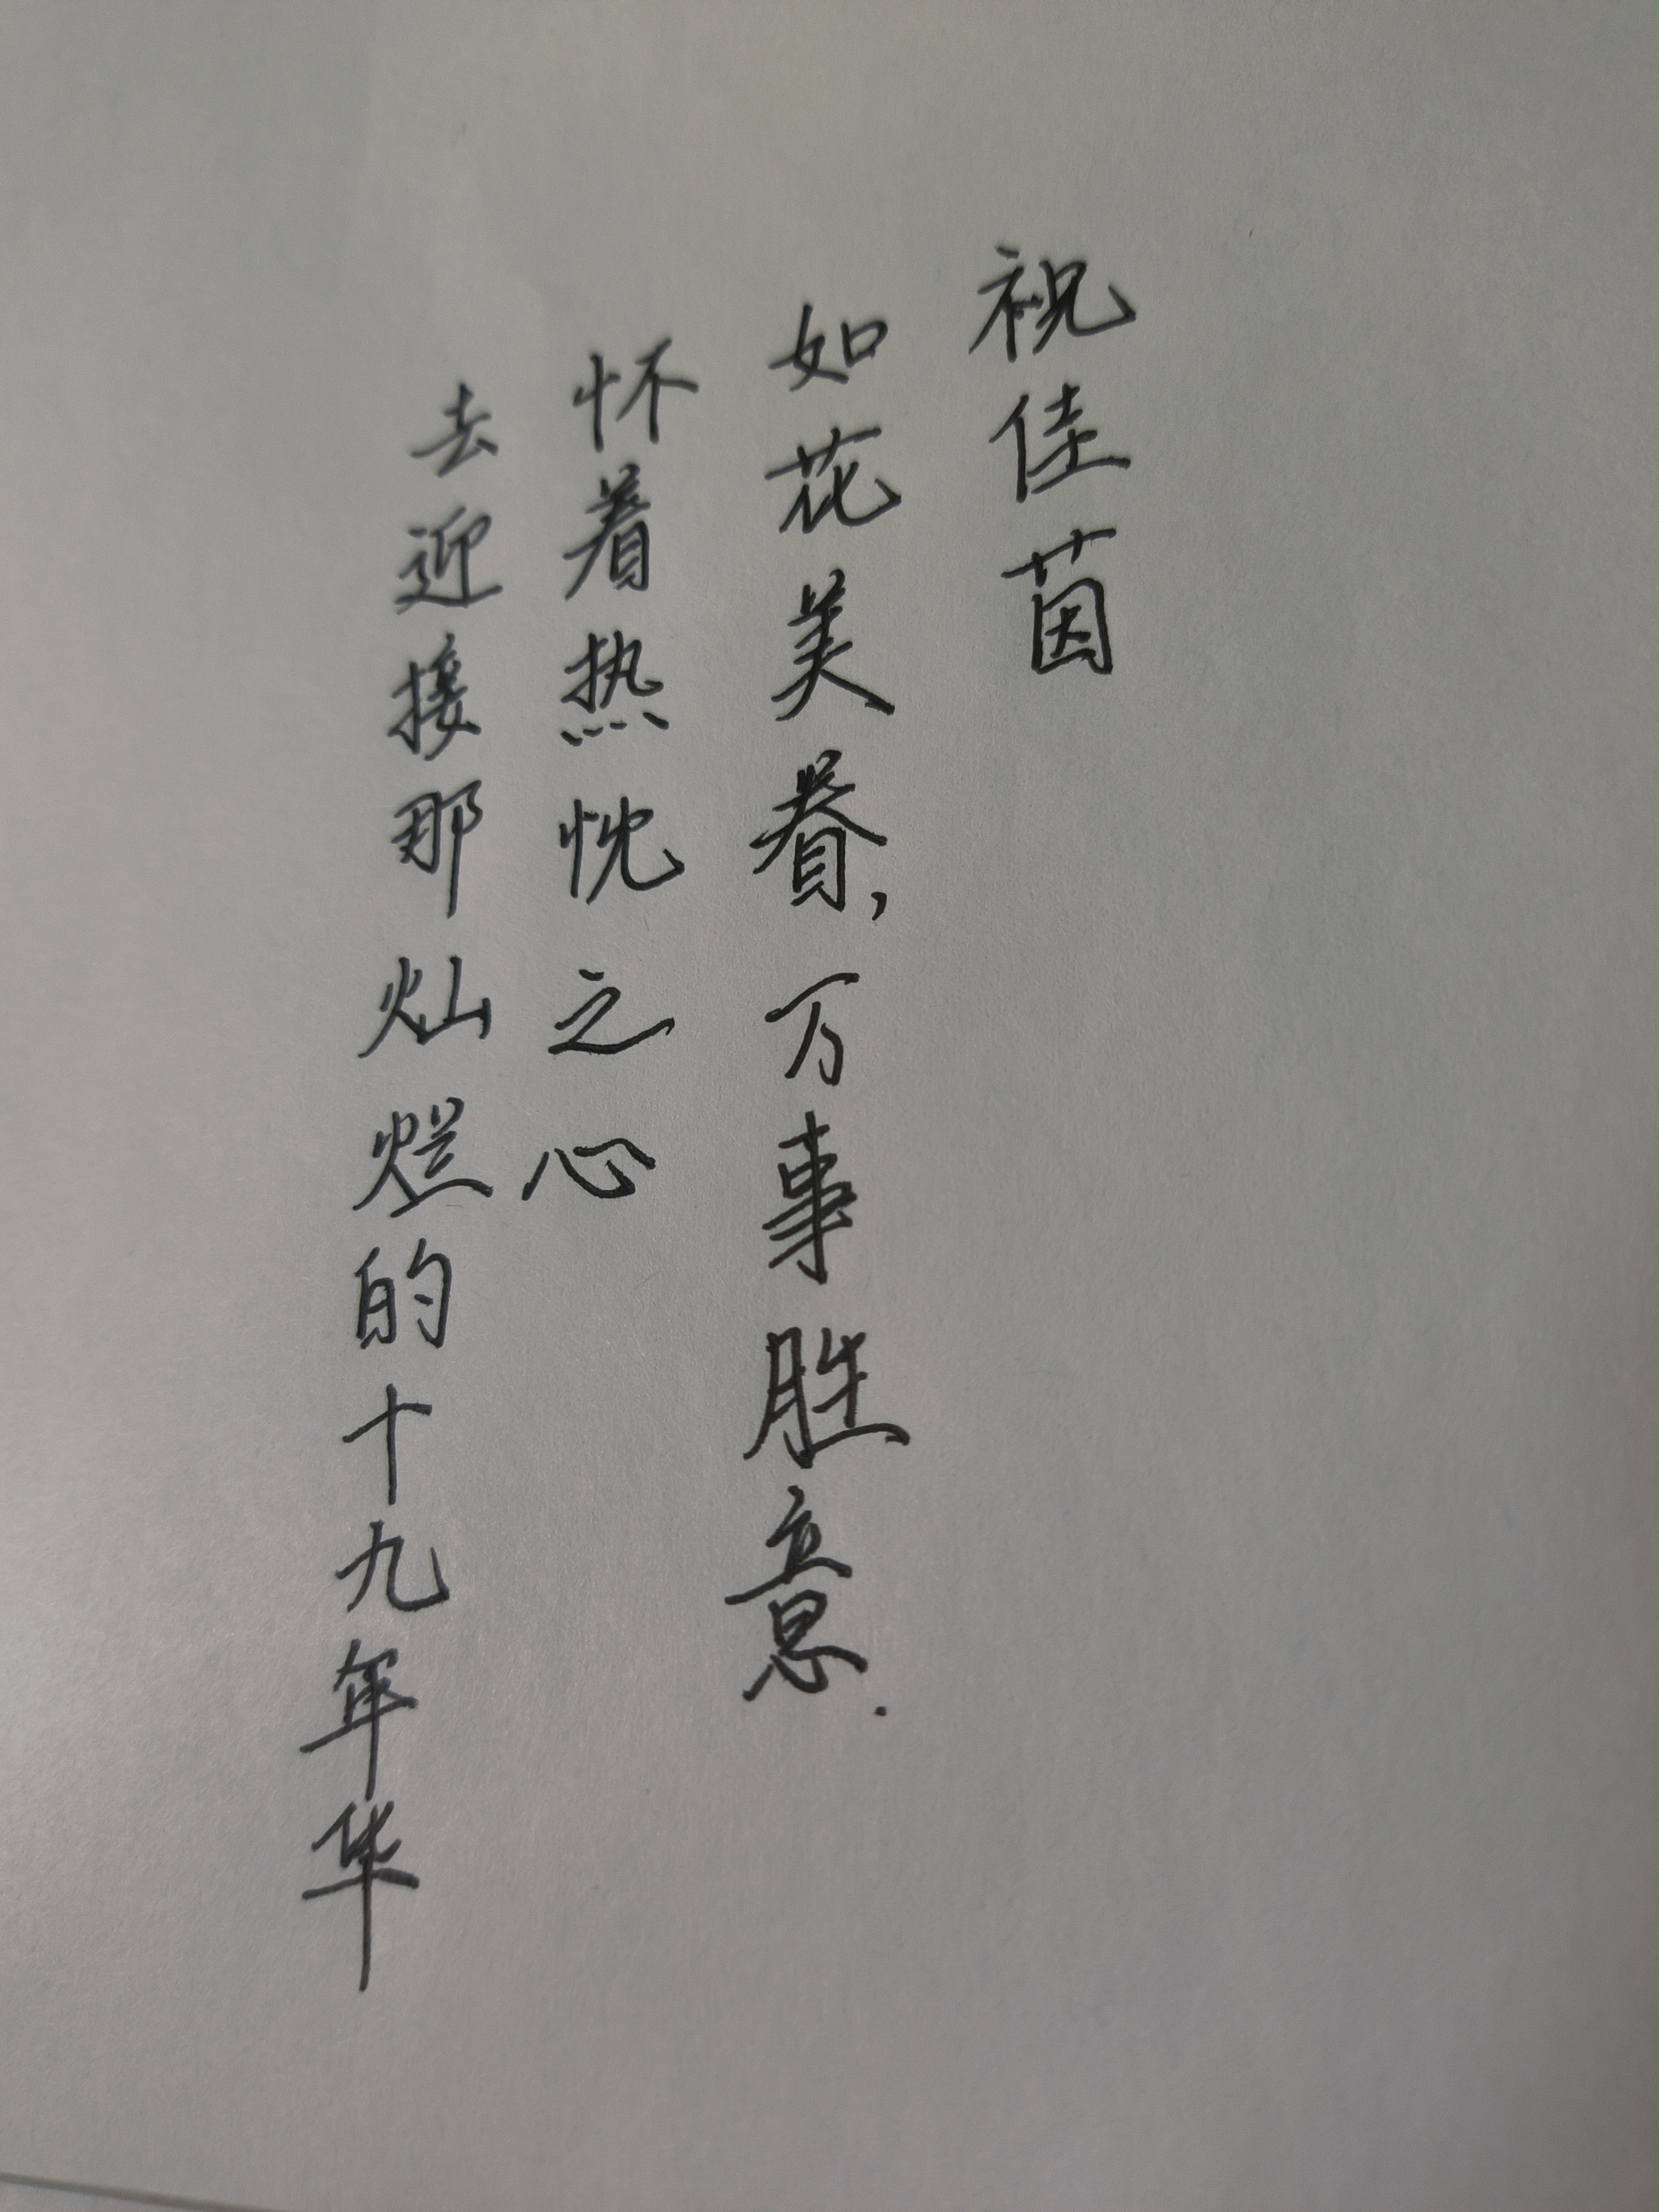 祝佳茵
如花美眷，万事胜意.
怀着热忱之心
去迎接那灿烂的十九年华